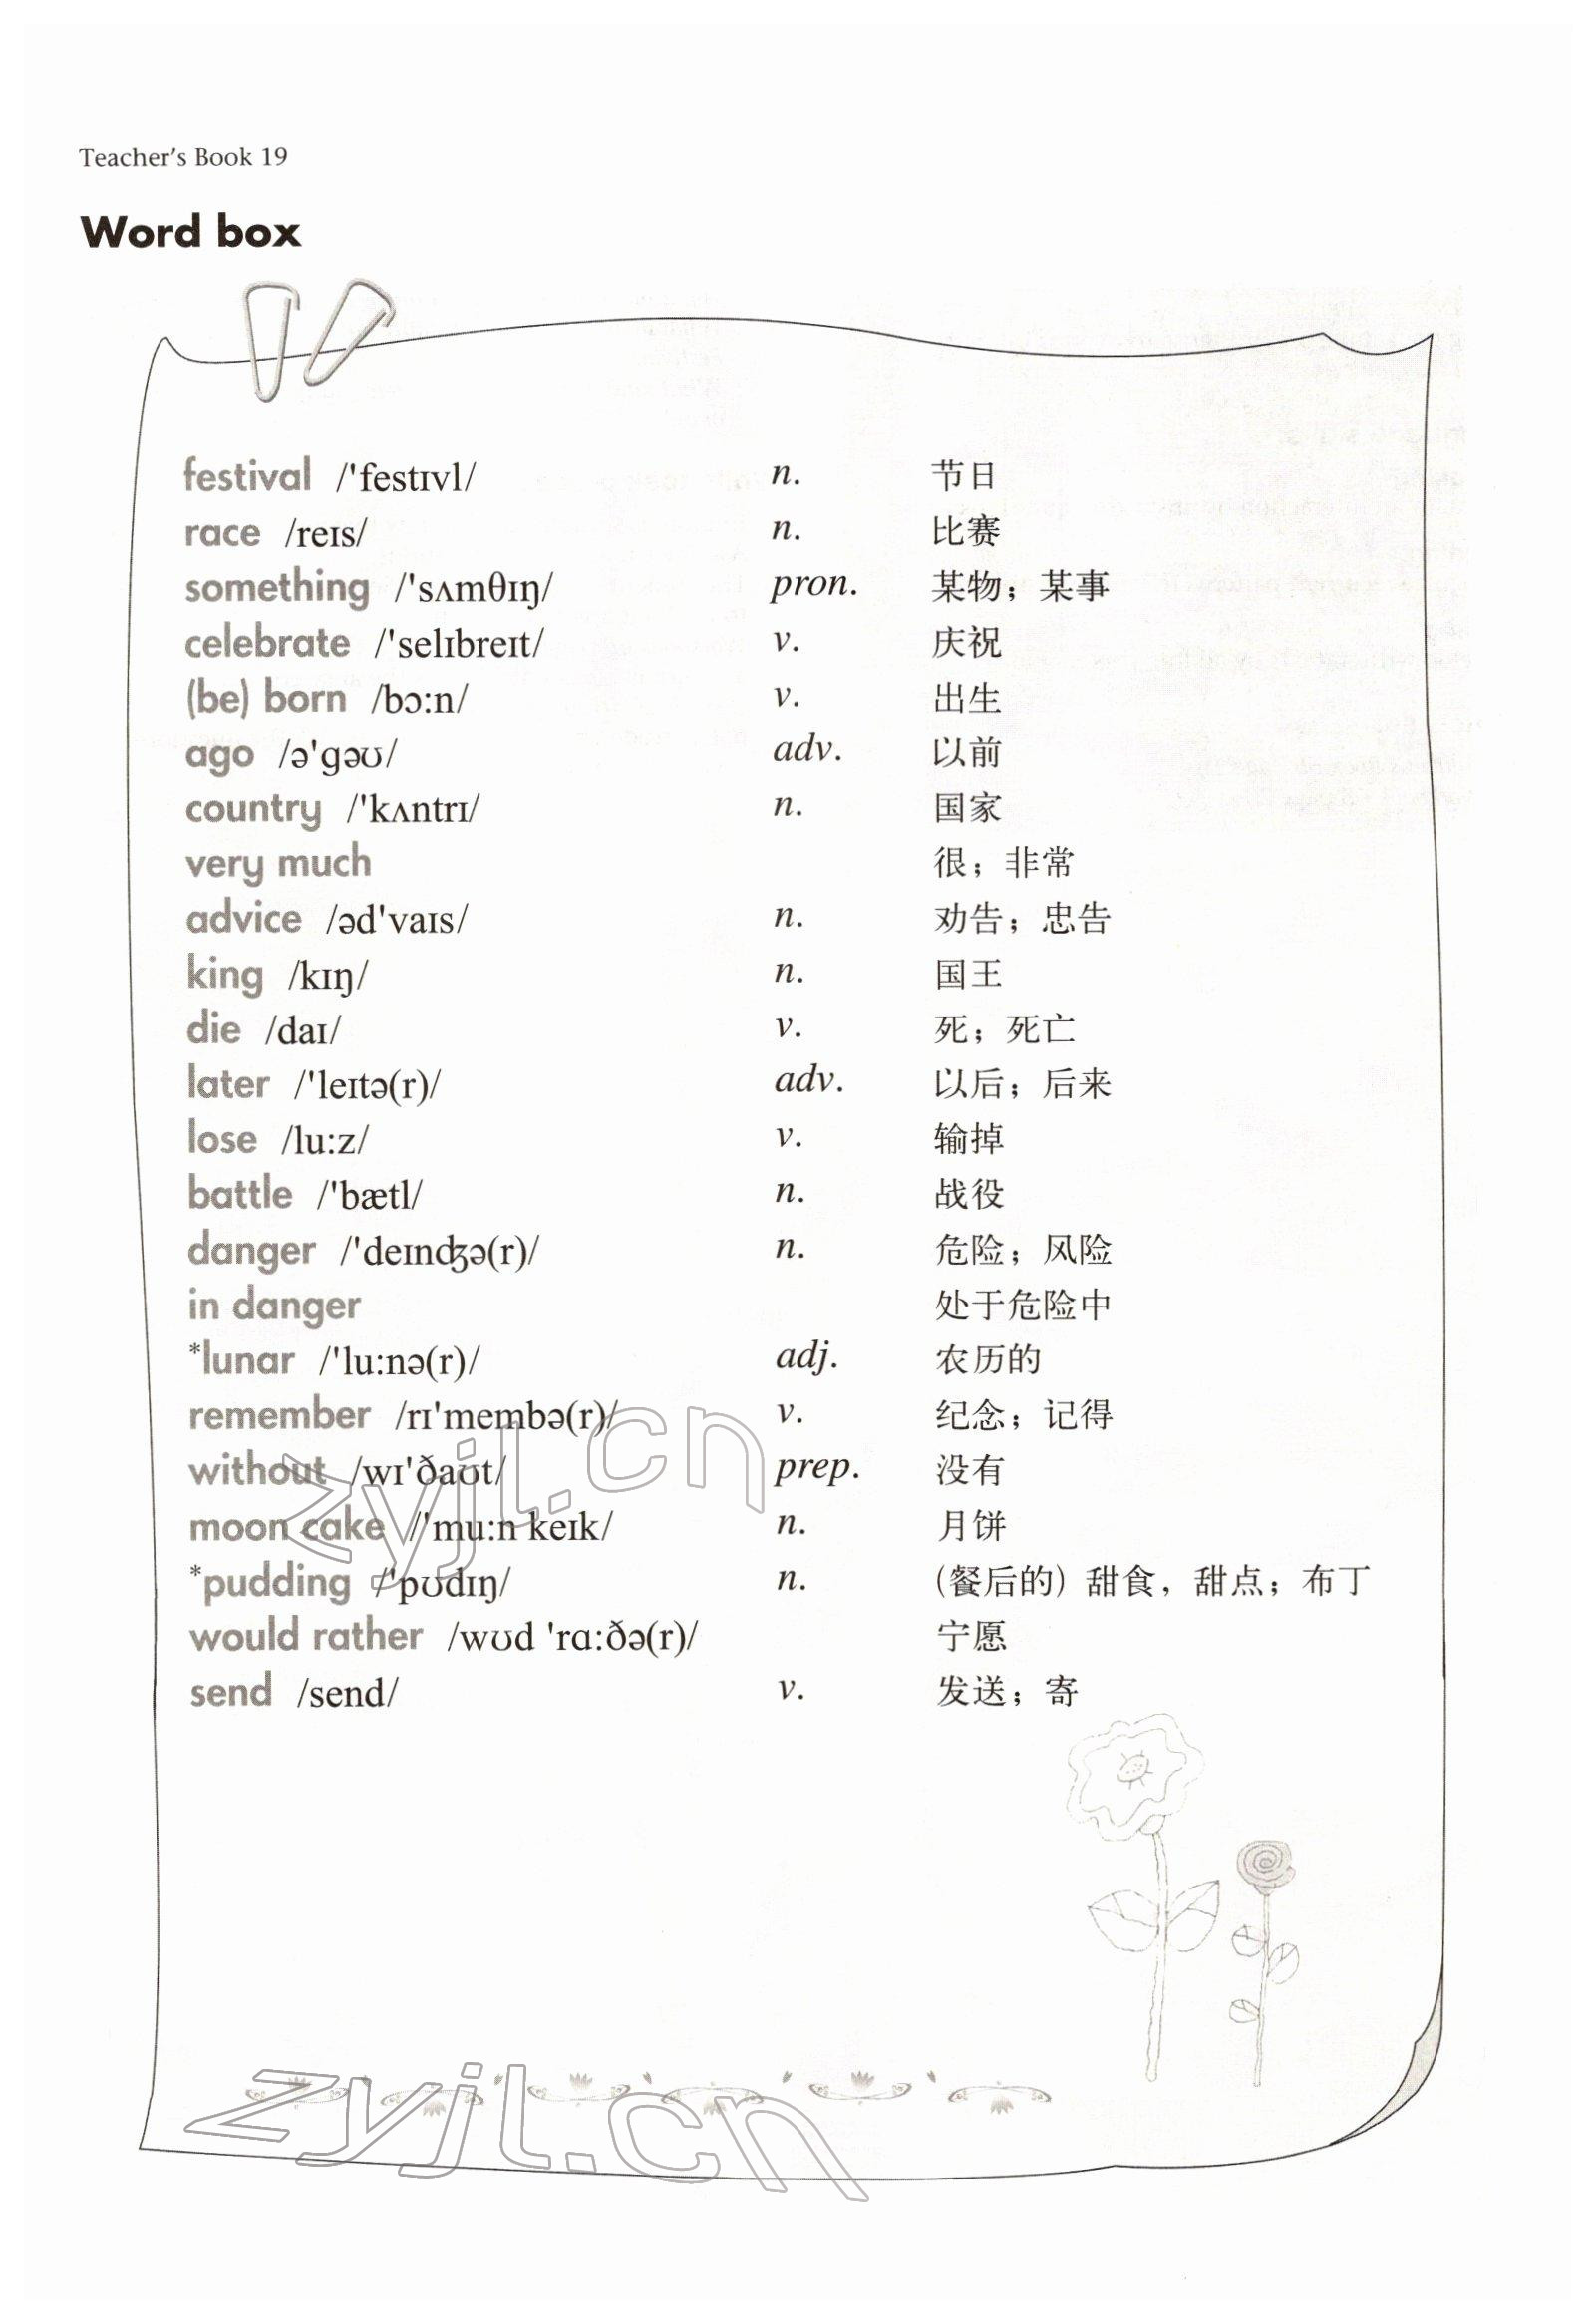 Teacher's Book 19
Word box
festival /'festɪvl/ n. 节日
race /reɪs/ n. 比赛
something /'sʌmθɪŋ/ pron. 某物；某事
celebrate /'selɪbreɪt/ v. 庆祝
(be) born /bɔ:n/ v. 出生
ago /ə'gəʊ/ adv. 以前
country /'kʌntrɪ/ n. 国家
very much 很；非常
advice /əd'vaɪs/ n. 劝告；忠告
king /kɪŋ/ n. 国王
die /daɪ/ v. 死；死亡
later /'leɪtə(r)/ adv. 以后；后来
lose /lu:z/ v. 输掉
battle /'bætl/ n. 战役
danger /'deɪnʤə(r)/ n. 危险；风险
in danger 处于危险中
*lunar /'lu:nə(r)/ adj. 农历的
remember /rɪ'membə(r)/ v. 纪念；记得
without /wɪ'ðaʊt/ prep. 没有
moon cake /'mu:n keɪk/ n. 月饼
*pudding /'pʊdɪŋ/ n. (餐后的) 甜食，甜点；布丁
would rather /wʊd 'rɑ:ðə(r)/ 宁愿
send /send/ v. 发送；寄
zyjl.cn
zyjl.cn